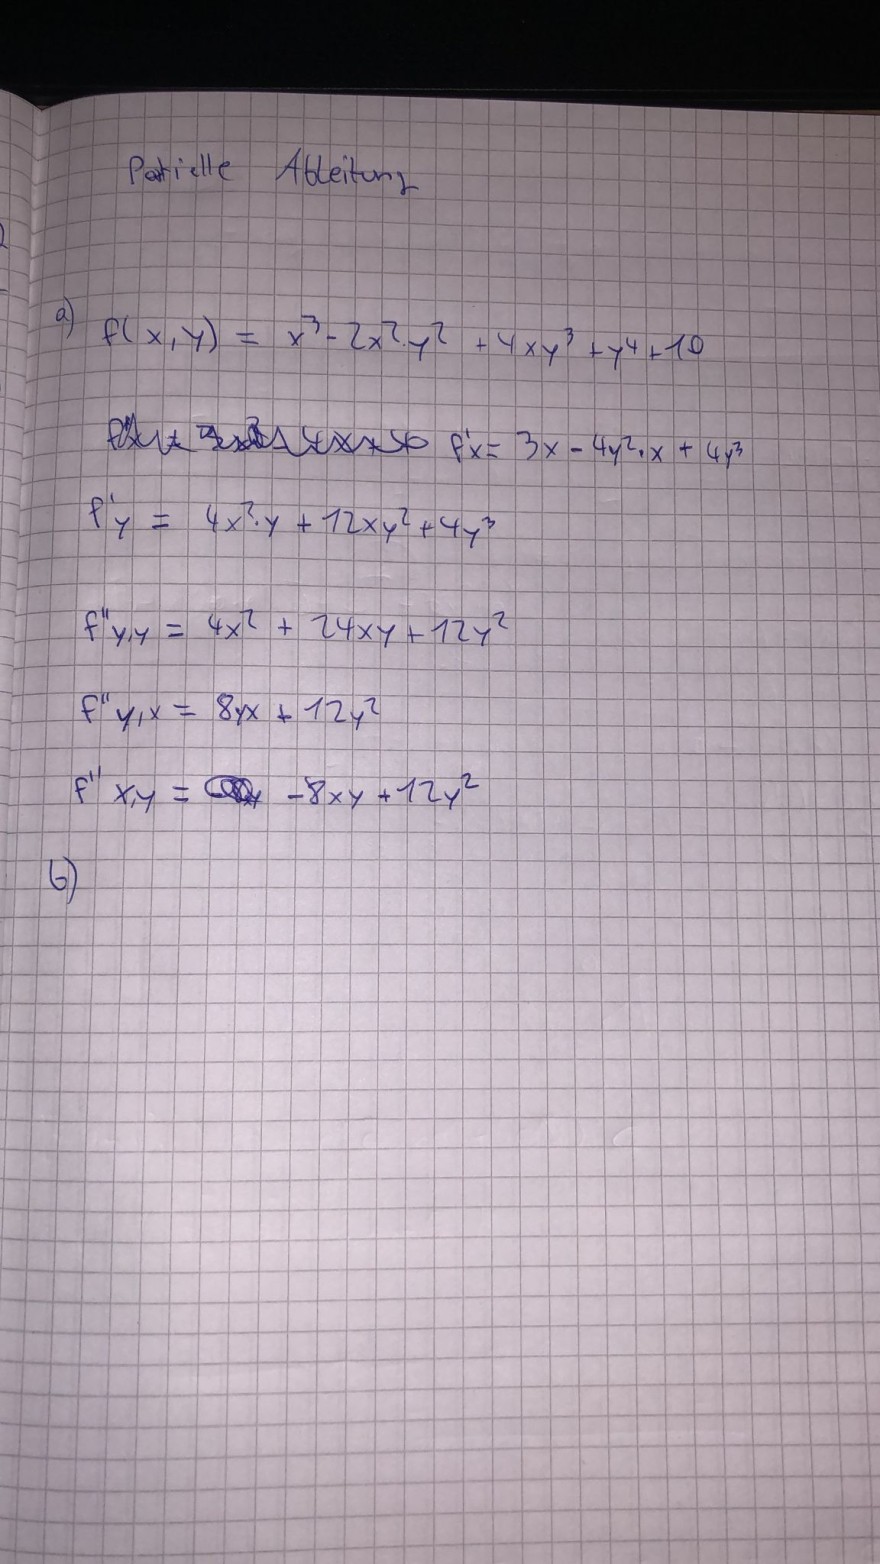 Partielle Ableitung
a) f(x,y) = x³ - 2x²·y² + 4xy³ + y⁴ + 10
f'x = 3x - 4y²·x + 4y³
f'y = 4x²·y + 12xy² + 4y³
f''y,y = 4x² + 24xy + 12y²
f''y,x = 8yx + 12y²
f''x,y = -8xy + 12y²
b)